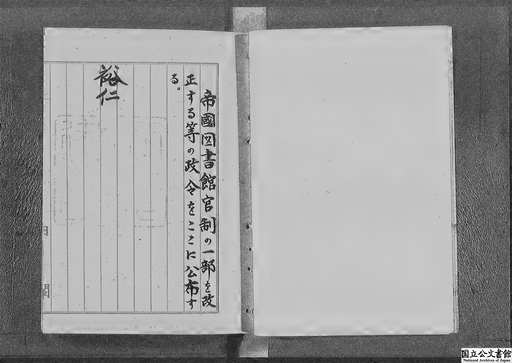 帝國図書館官制の一部を改
正する等の政令をここに公布す
る。
裕仁
国立公文書館
National Archives of Japan